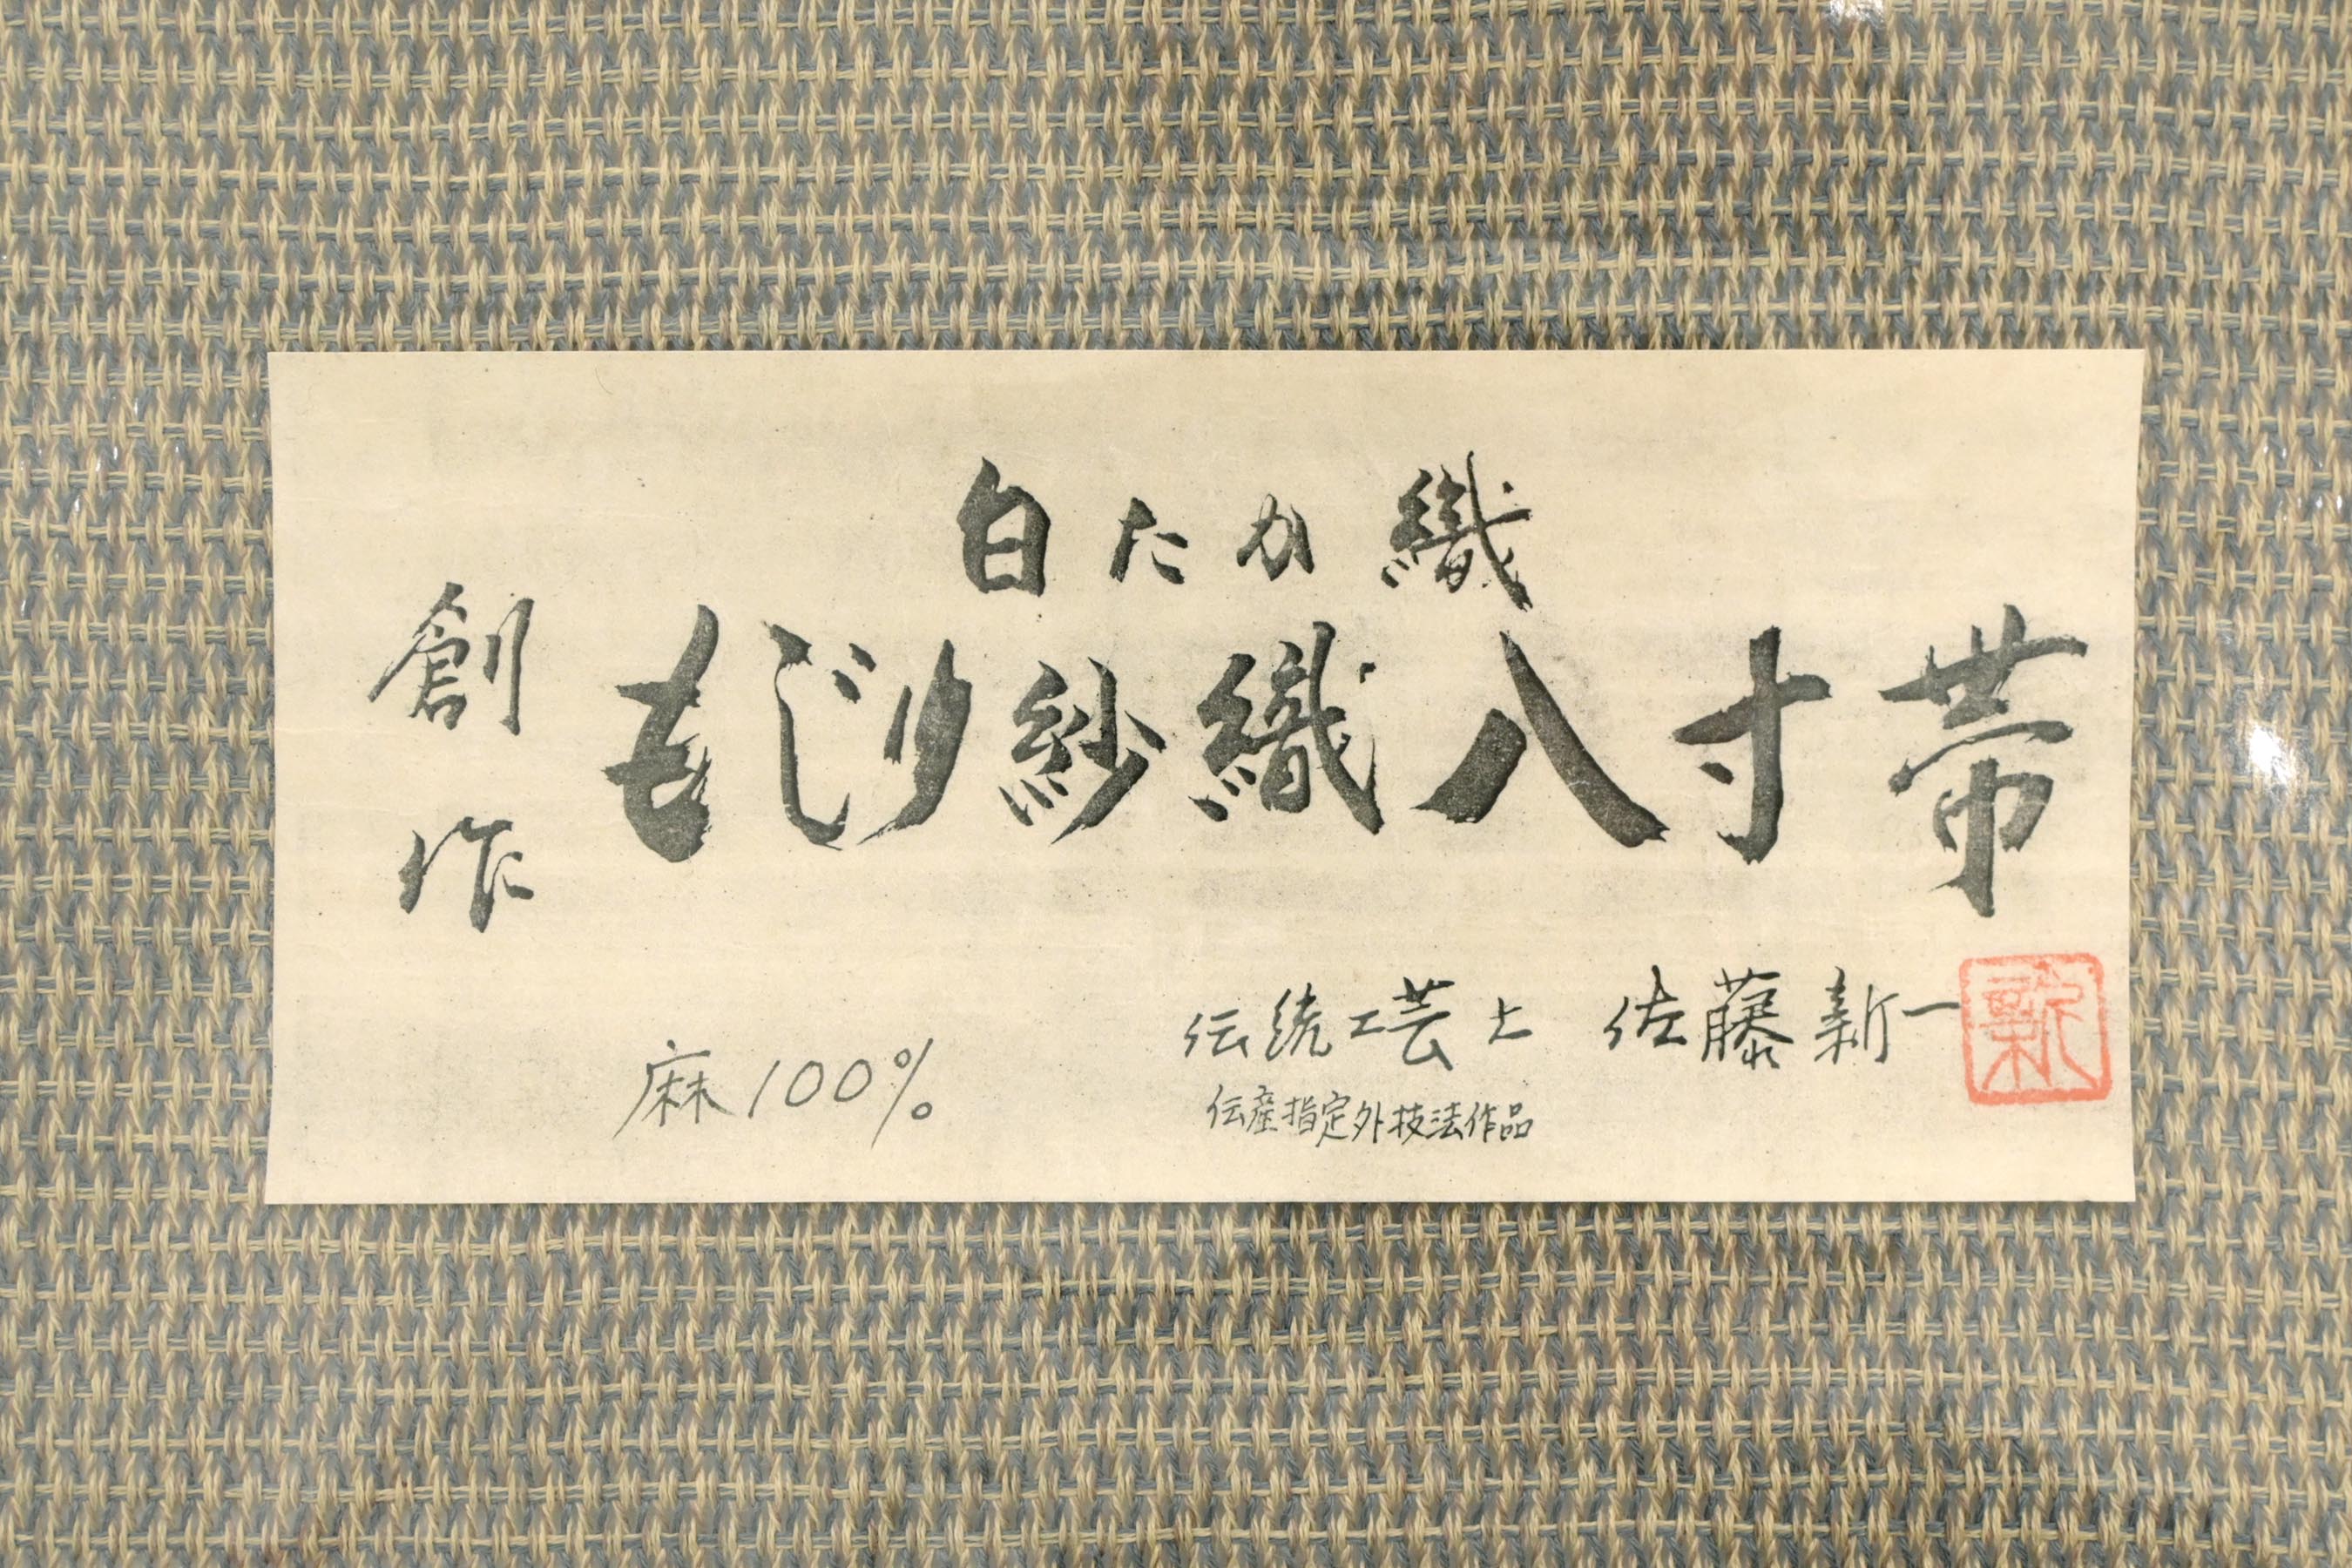 白たか織
創作
もじり紗織八寸帯
伝統工芸士 佐藤新一
麻100%
伝産指定外技法作品
新